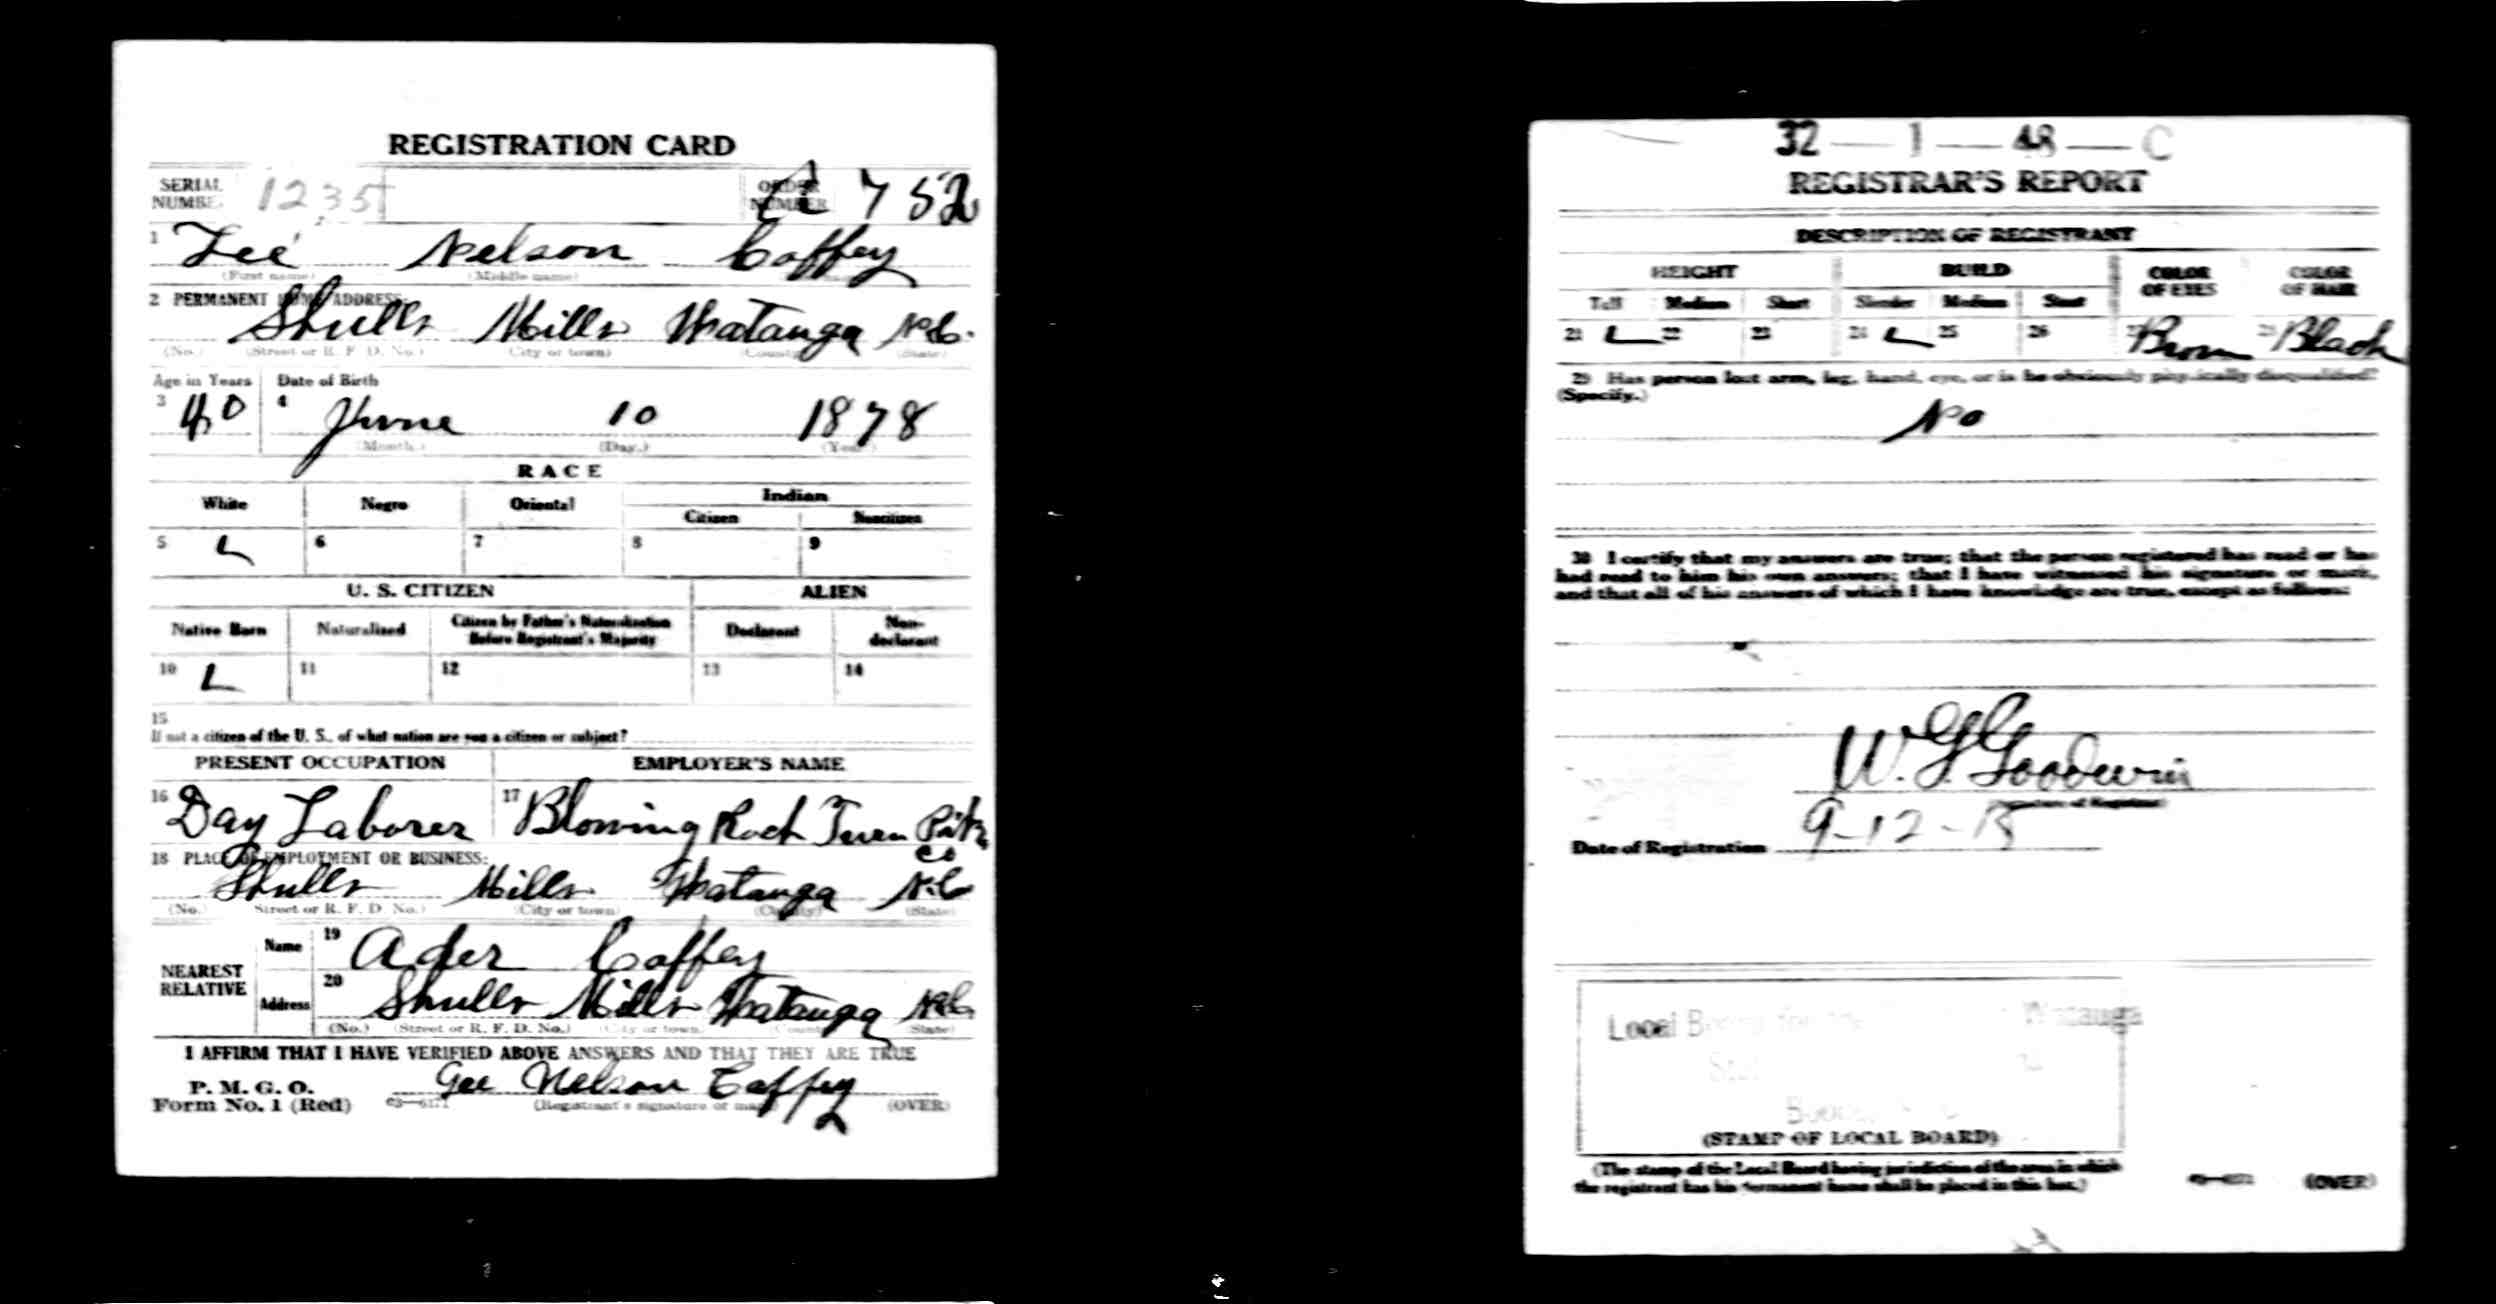 REGISTRATION CARD
SERIAL NUMBER 1235 ORDER NUMBER A 752
1 Lee Nelson Coffey
(First name) (Middle name)
2 PERMANENT HOME ADDRESS:
Shulls Mills Watauga N.C.
(No.) (Street or R. F. D. No.) (City or town) (County) (State)
Age in Years Date of Birth
3 40 4 June 10 1878
(Month.) (Day.) (Year.)
RACE
White Negro Oriental Indian
Citizen Noncitizen
5 6 7 8 9
U. S. CITIZEN ALIEN
Native Born Naturalized Citizen by Father's Naturalization Before Registrant's Majority Declarant Non-declarant
10 11 12 13 14
15
If not a citizen of the U. S., of what nation are you a citizen or subject?
PRESENT OCCUPATION EMPLOYER'S NAME
16 Day Laborer 17 Blowing Rock Turn Pike Co
18 PLACE OF EMPLOYMENT OR BUSINESS:
Shulls Mills Watauga N.C
(No.) (Street or R. F. D. No.) (City or town) (County) (State)
NEAREST RELATIVE
Name 19 Ader Coffey
Address 20 Shulls Mills Watauga N.C.
(No.) (Street or R. F. D. No.) (City or town) (County) (State)
I AFFIRM THAT I HAVE VERIFIED ABOVE ANSWERS AND THAT THEY ARE TRUE
P. M. G. O.
Form No. 1 (Red) 03—6171 Lee Nelson Coffey
(Registrant's signature or mark) (OVER)
32—1—48—C
REGISTRAR'S REPORT
DESCRIPTION OF REGISTRANT
HEIGHT BUILD COLOR OF EYES COLOR OF HAIR
Tall Medium Short Slender Medium Stout
21 22 23 24 25 26 27 Brown 28 Black
29 Has person lost arm, leg, hand, eye, or is he obviously physically disqualified?
(Specify.)
No
30 I certify that my answers are true; that the person registered has read or has
had read to him his own answers; that I have witnessed his signature or mark,
and that all of his answers of which I have knowledge are true, except as follows:
W. G. Goodwin
(Signature of Registrar)
Date of Registration 9-12-18
Local Board for the Watauga
(STAMP OF LOCAL BOARD)
(The stamp of the Local Board having jurisdiction of the area in which
the registrant has his permanent home shall be placed in this box.)
03—6171 (OVER)